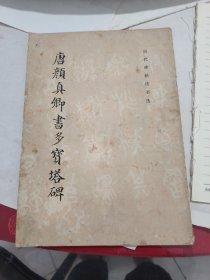 唐顏真卿書多寶塔碑
歷代碑帖法書選